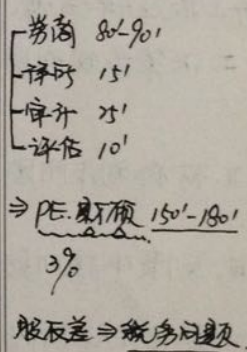 券商 80'-90'
律所 15'
审计 25'
评估 10'
⇒ PE. 财顾 150'-180'
3%
股权差 ⇒ 税务问题